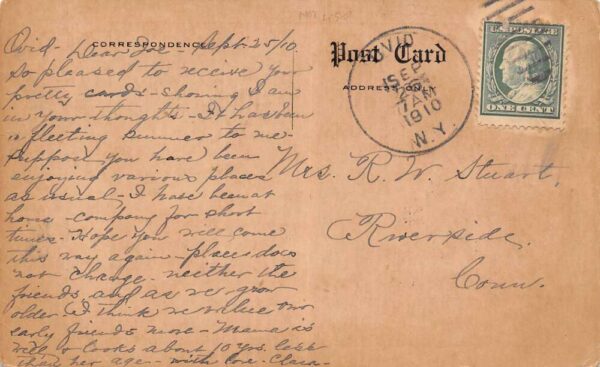 CORRESPONDENCE
Post Card
ADDRESS ONLY
OVID
SEP
7 AM
1910
N.Y.
U.S. POSTAGE
ONE CENT
Ovid - Dear Joe - Sept-25/10.
So pleased to receive your
pretty cards - Shoning I am
in your thoughts - It has been
a fleeting summer to me -
Suppose you have been
enjoying various places
as usual - I have been at
home - company for short
times - Hope you will come
this way again - places does
not change - neither the
friends, and as we grow
older - I think we value our
early friends more - Mama is
well & looks about 10 yrs. less
than her age - with love - Clara -
Mrs. R. W. Stuart,
Riverside,
Conn.